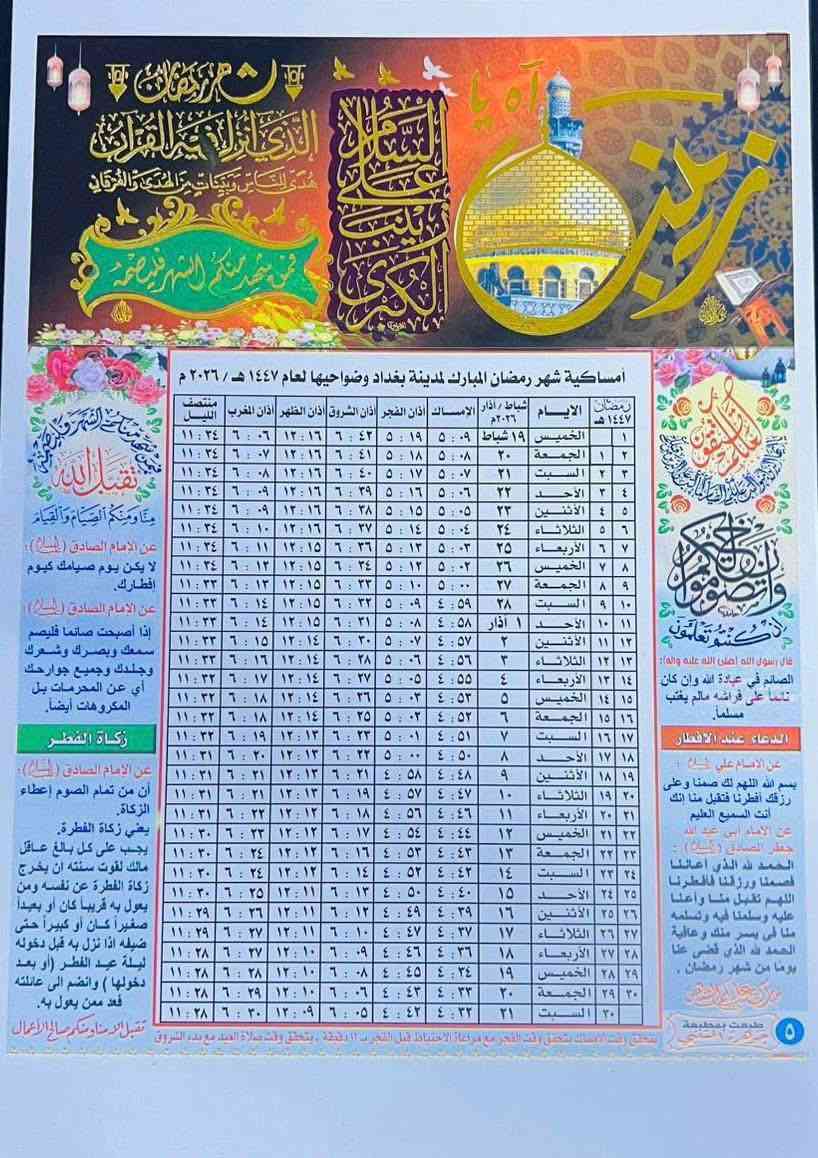 شهر رمضان
الذي أنزل فيه القرآن
هدى للناس وبينات من الهدى والفرقان
فمن شهد منكم الشهر فليصمه
السلام
على
زينب
الكبرى
آه يا
زينب
أمساكية شهر رمضان المبارك لمدينة بغداد وضواحيها لعام ١٤٤٧ هـ / ٢٠٢٦ م
رمضان ١٤٤٧ هـ الايام شباط / آذار ٢٠٢٦م الإمساك أذان الفجر أذان الشروق أذان الظهر أذان المغرب منتصف الليل
١ الخميس ١٩ شباط ٥:٠٩ ٥:١٩ ٦:٤٢ ١٢:١٦ ٦:٠٦ ١١:٣٤
٢ ١ الجمعة ٢٠ ٥:٠٨ ٥:١٨ ٦:٤١ ١٢:١٦ ٦:٠٧ ١١:٣٤
٣ ٢ السبت ٢١ ٥:٠٧ ٥:١٧ ٦:٤٠ ١٢:١٦ ٦:٠٨ ١١:٣٤
٤ ٣ الأحد ٢٢ ٥:٠٦ ٥:١٦ ٦:٣٩ ١٢:١٦ ٦:٠٩ ١١:٣٤
٥ ٤ الأثنين ٢٣ ٥:٠٥ ٥:١٥ ٦:٣٨ ١٢:١٦ ٦:٠٩ ١١:٣٤
٦ ٥ الثلاثاء ٢٤ ٥:٠٤ ٥:١٤ ٦:٣٧ ١٢:١٦ ٦:١٠ ١١:٣٤
٧ ٦ الأربعاء ٢٥ ٥:٠٣ ٥:١٣ ٦:٣٦ ١٢:١٥ ٦:١١ ١١:٣٤
٨ ٧ الخميس ٢٦ ٥:٠٢ ٥:١٢ ٦:٣٤ ١٢:١٥ ٦:١٢ ١١:٣٤
٩ ٨ الجمعة ٢٧ ٥:٠٠ ٥:١٠ ٦:٣٣ ١٢:١٥ ٦:١٣ ١١:٣٣
١٠ ٩ السبت ٢٨ ٤:٥٩ ٥:٠٩ ٦:٣٢ ١٢:١٥ ٦:١٤ ١١:٣٣
١١ ١٠ الأحد ١ آذار ٤:٥٨ ٥:٠٨ ٦:٣١ ١٢:١٥ ٦:١٤ ١١:٣٣
١٢ ١١ الأثنين ٢ ٤:٥٧ ٥:٠٧ ٦:٣٠ ١٢:١٤ ٦:١٥ ١١:٣٣
١٣ ١٢ الثلاثاء ٣ ٤:٥٦ ٥:٠٦ ٦:٢٨ ١٢:١٤ ٦:١٦ ١١:٣٣
١٤ ١٣ الأربعاء ٤ ٤:٥٥ ٥:٠٥ ٦:٢٧ ١٢:١٤ ٦:١٧ ١١:٣٢
١٥ ١٤ الخميس ٥ ٤:٥٣ ٥:٠٣ ٦:٢٦ ١٢:١٤ ٦:١٨ ١١:٣٢
١٦ ١٥ الجمعة ٦ ٤:٥٢ ٥:٠٢ ٦:٢٥ ١٢:١٤ ٦:١٨ ١١:٣٢
١٧ ١٦ السبت ٧ ٤:٥١ ٥:٠١ ٦:٢٣ ١٢:١٣ ٦:١٩ ١١:٣٢
١٨ ١٧ الأحد ٨ ٤:٥٠ ٥:٠٠ ٦:٢٢ ١٢:١٣ ٦:٢٠ ١١:٣١
١٩ ١٨ الأثنين ٩ ٤:٤٨ ٤:٥٨ ٦:٢١ ١٢:١٣ ٦:٢١ ١١:٣١
٢٠ ١٩ الثلاثاء ١٠ ٤:٤٧ ٤:٥٧ ٦:١٩ ١٢:١٣ ٦:٢١ ١١:٣١
٢١ ٢٠ الأربعاء ١١ ٤:٤٦ ٤:٥٦ ٦:١٨ ١٢:١٢ ٦:٢٢ ١١:٣١
٢٢ ٢١ الخميس ١٢ ٤:٤٤ ٤:٥٤ ٦:١٧ ١٢:١٢ ٦:٢٣ ١١:٣٠
٢٣ ٢٢ الجمعة ١٣ ٤:٤٣ ٤:٥٣ ٦:١٦ ١٢:١٢ ٦:٢٤ ١١:٣٠
٢٤ ٢٣ السبت ١٤ ٤:٤٢ ٤:٥٢ ٦:١٤ ١٢:١٢ ٦:٢٤ ١١:٣٠
٢٥ ٢٤ الأحد ١٥ ٤:٤٠ ٤:٥٠ ٦:١٣ ١٢:١١ ٦:٢٥ ١١:٣٠
٢٦ ٢٥ الأثنين ١٦ ٤:٣٩ ٤:٤٩ ٦:١٢ ١٢:١١ ٦:٢٦ ١١:٢٩
٢٧ ٢٦ الثلاثاء ١٧ ٤:٣٧ ٤:٤٧ ٦:١٠ ١٢:١١ ٦:٢٧ ١١:٢٩
٢٨ ٢٧ الأربعاء ١٨ ٤:٣٦ ٤:٤٦ ٦:٠٩ ١٢:١٠ ٦:٢٧ ١١:٢٨
٢٩ ٢٨ الخميس ١٩ ٤:٣٤ ٤:٤٥ ٦:٠٨ ١٢:١٠ ٦:٢٨ ١١:٢٨
٣٠ ٢٩ الجمعة ٢٠ ٤:٣٣ ٤:٤٣ ٦:٠٦ ١٢:١٠ ٦:٢٩ ١١:٢٨
٣٠ السبت ٢١ ٤:٣٢ ٤:٤٢ ٦:٠٥ ١٢:٠٩ ٦:٣٠ ١١:٢٨
يتحقق وقت الامساك بتحقق وقت الفجر مع مراعاة الاحتياط قبل الفجر بـ ١١ دقيقة ، يتحقق وقت صلاة العيد مع بدء الشروق
لعلكم تتقون
وأن تصوموا خير لكم
إن كنتم تعلمون
قال رسول الله (صلى الله عليه واله):
الصائم في عبادة الله وإن كان
نائماً على فراشه مالم يغتب
مسلماً.
الدعاء عند الافطار
عن الامام علي :
بسم الله اللهم لك صمنا وعلى
رزقك أفطرنا فتقبل منا إنك
أنت السميع العليم
عن الامام ابي عبد الله
جعفر الصادق :
الحمد لله الذي أعاننا
فصمنا ورزقنا فأفطرنا
اللهم تقبل منا وأعنا
عليه وسلمنا فيه وتسلمه
منا في يسر منك وعافية
الحمد لله الذي قضى عنا
يوما من شهر رمضان .
طبعت بمطبعة
٥
تقبل الله
منا ومنكم الصيام والقيام
عن الامام الصادق :
لا يكن يوم صيامك كيوم
إفطارك.
عن الامام الصادق :
إذا أصبحت صائما فليصم
سمعك وبصرك وشعرك
وجلدك وجميع جوارحك
أي عن المحرمات بل
المكروهات أيضاً.
زكاة الفطر
عن الامام الصادق :
أن من تمام الصوم إعطاء
الزكاة.
يعني زكاة الفطرة.
يجب على كل بالغ عاقل
مالك لقوت سنته ان يخرج
زكاة الفطرة عن نفسه ومن
يعول به قريباً كان أو بعيداً
صغيراً كان أو كبيراً حتى
ضيفه اذا نزل به قبل دخوله
ليلة عيد الفطر (أو بعد
دخولها ) وانضم الى عائلته
فعد ممن يعول به.
تقبل الله منا ومنكم صالح الأعمال